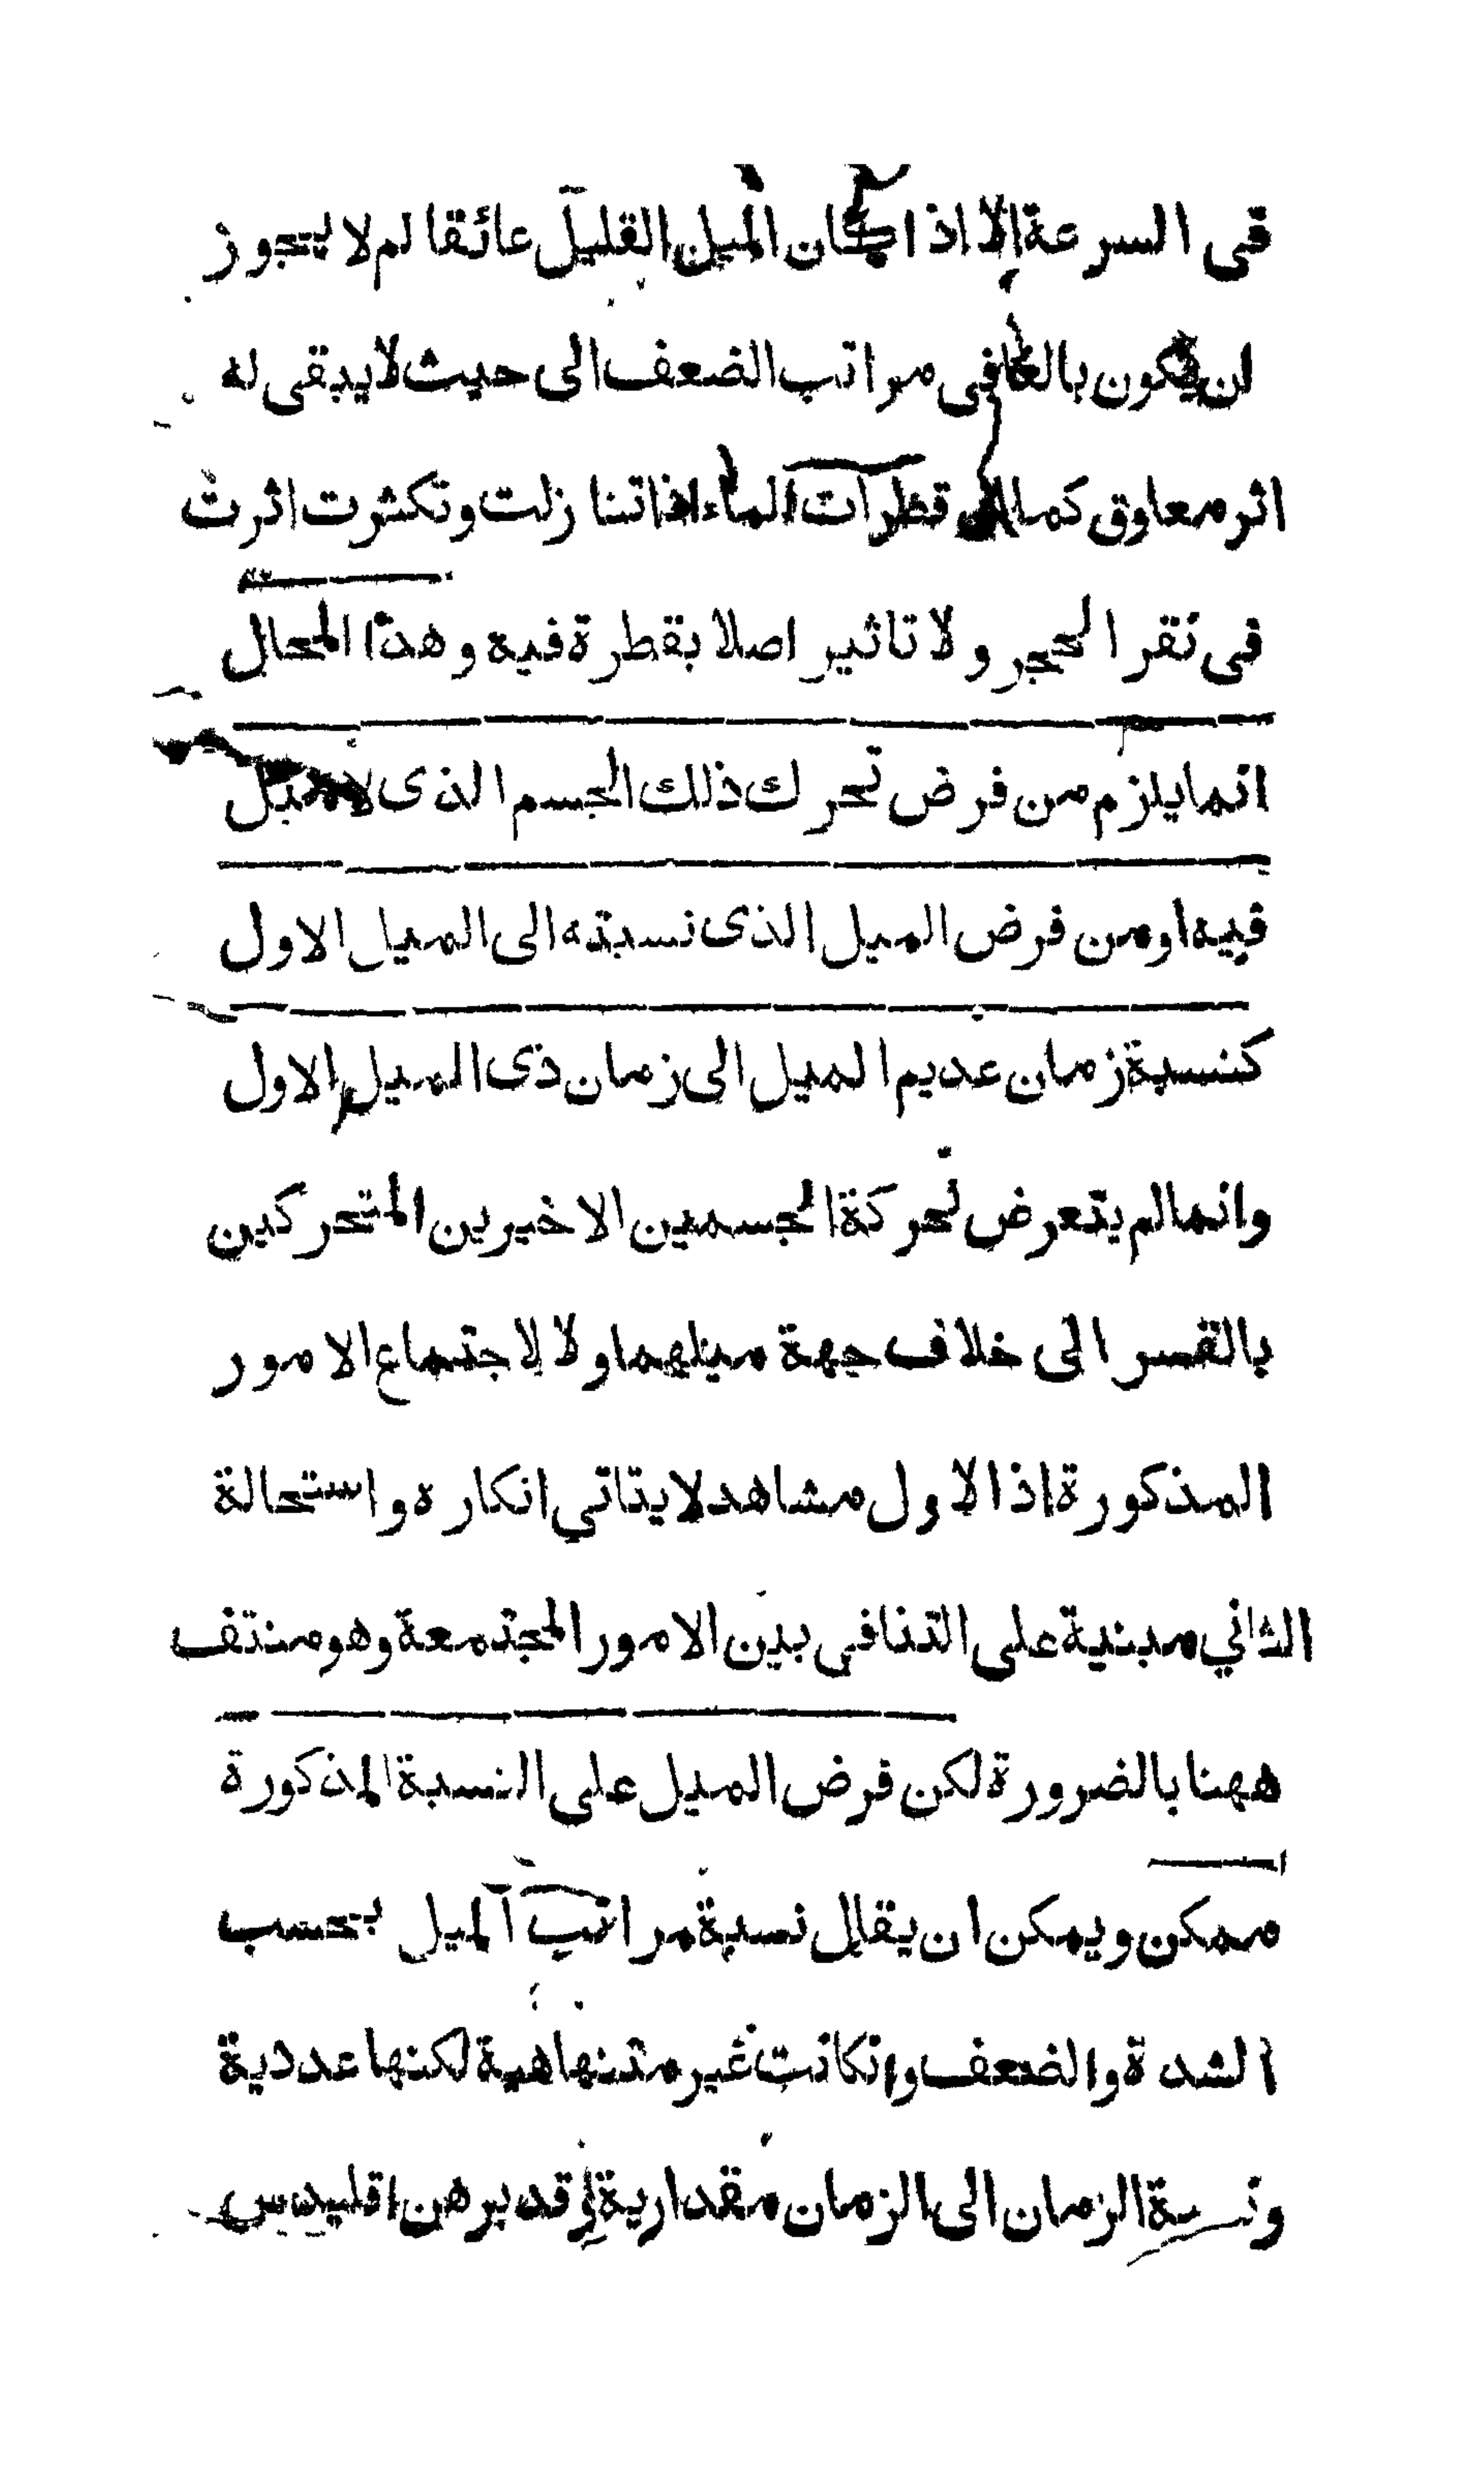 فى السرعة الا اذا كان الميل القليل عائقا لم لا يجوز
ان يكون بالغا فى مراتب الضعف الى حيث لا يبقى له
اثر معاوق كما ان قطرات الماء اذا تنازلت وتكثرت اثرت
فى نقر الحجر ولا تاثير اصلا بقطرة فيه وهذا المحال
انما يلزم من فرض تحرك ذلك الجسم الذى لا ميل
فيه او من فرض الميل الذى نسبته الى الميل الاول
كنسبة زمان عديم الميل الى زمان ذى الميل الاول
وانما لم يتعرض لحركة الجسمين الاخيرين المتحركين
بالقسر الى خلاف جهة ميلهما ولا لاجتماع الامور
المذكورة اذ الاول مشاهد لا يتاتي انكاره واستحالة
الثاني مبنية على التنافى بين الامور المجتمعة وهو منتف
ههنا بالضرورة لكن فرض الميل على النسبة المذكورة
ممكن ويمكن ان يقال نسبة مراتب الميل بحسب
الشدة والضعف وانكانت غير متنهاهية لكنها عددية
ونسبة الزمان الى الزمان مقدارية وقد برهن اقليدس